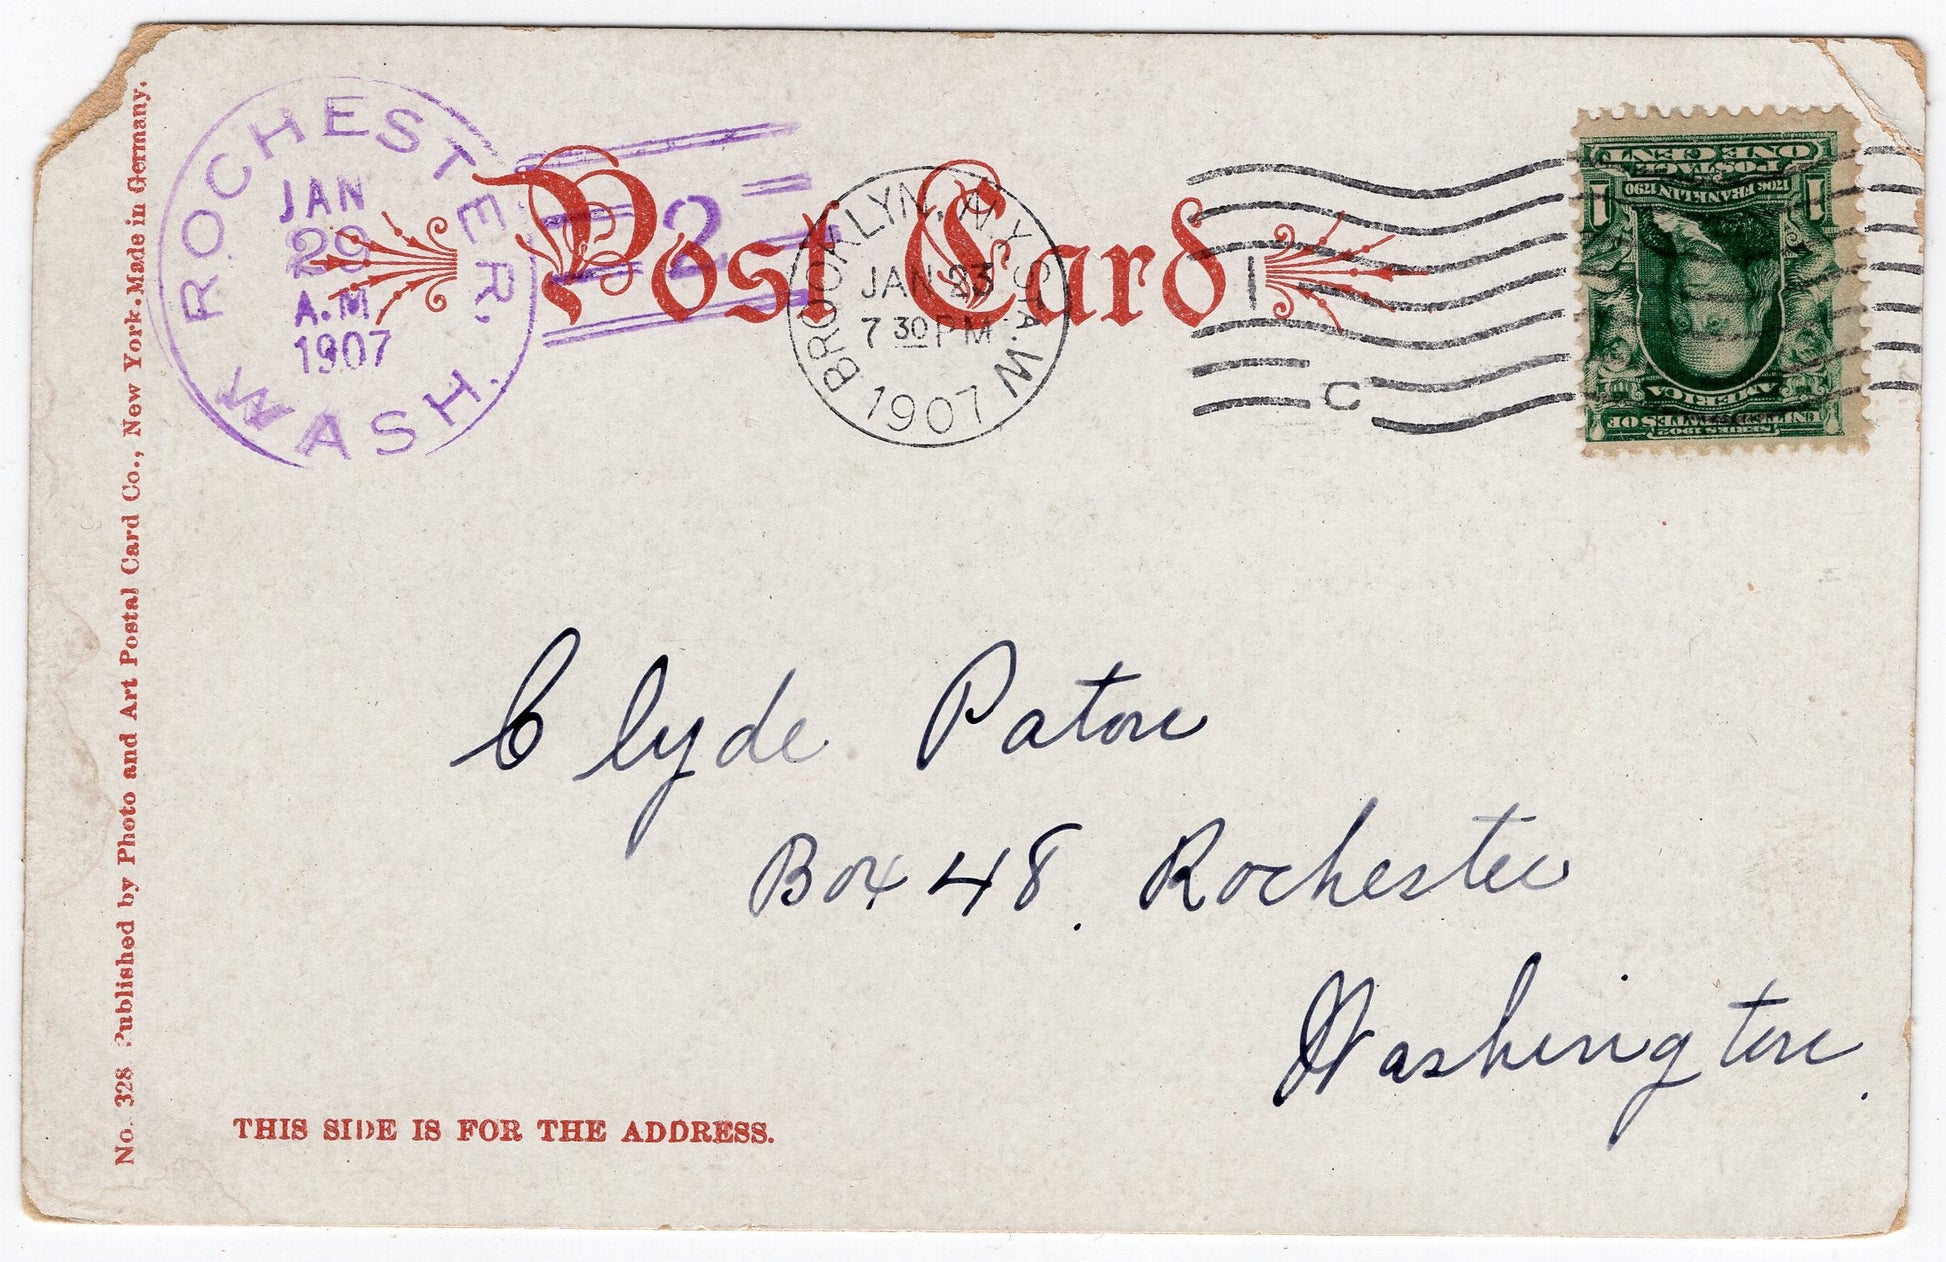 Post Card
ROCHESTER, WASH.
JAN
29
A.M.
1907
2
BROOKLYN, N.Y. STA. W
JAN 23
7 30 PM
1907
1
C
ONE CENT
POSTAGE
1706 FRANKLIN 1790
1 1
SERIES 1902
UNITED STATES OF
AMERICA
Clyde Paton
Box 48. Rochester
Washington.
THIS SIDE IS FOR THE ADDRESS.
No. 328 Published by Photo and Art Postal Card Co., New York. Made in Germany.